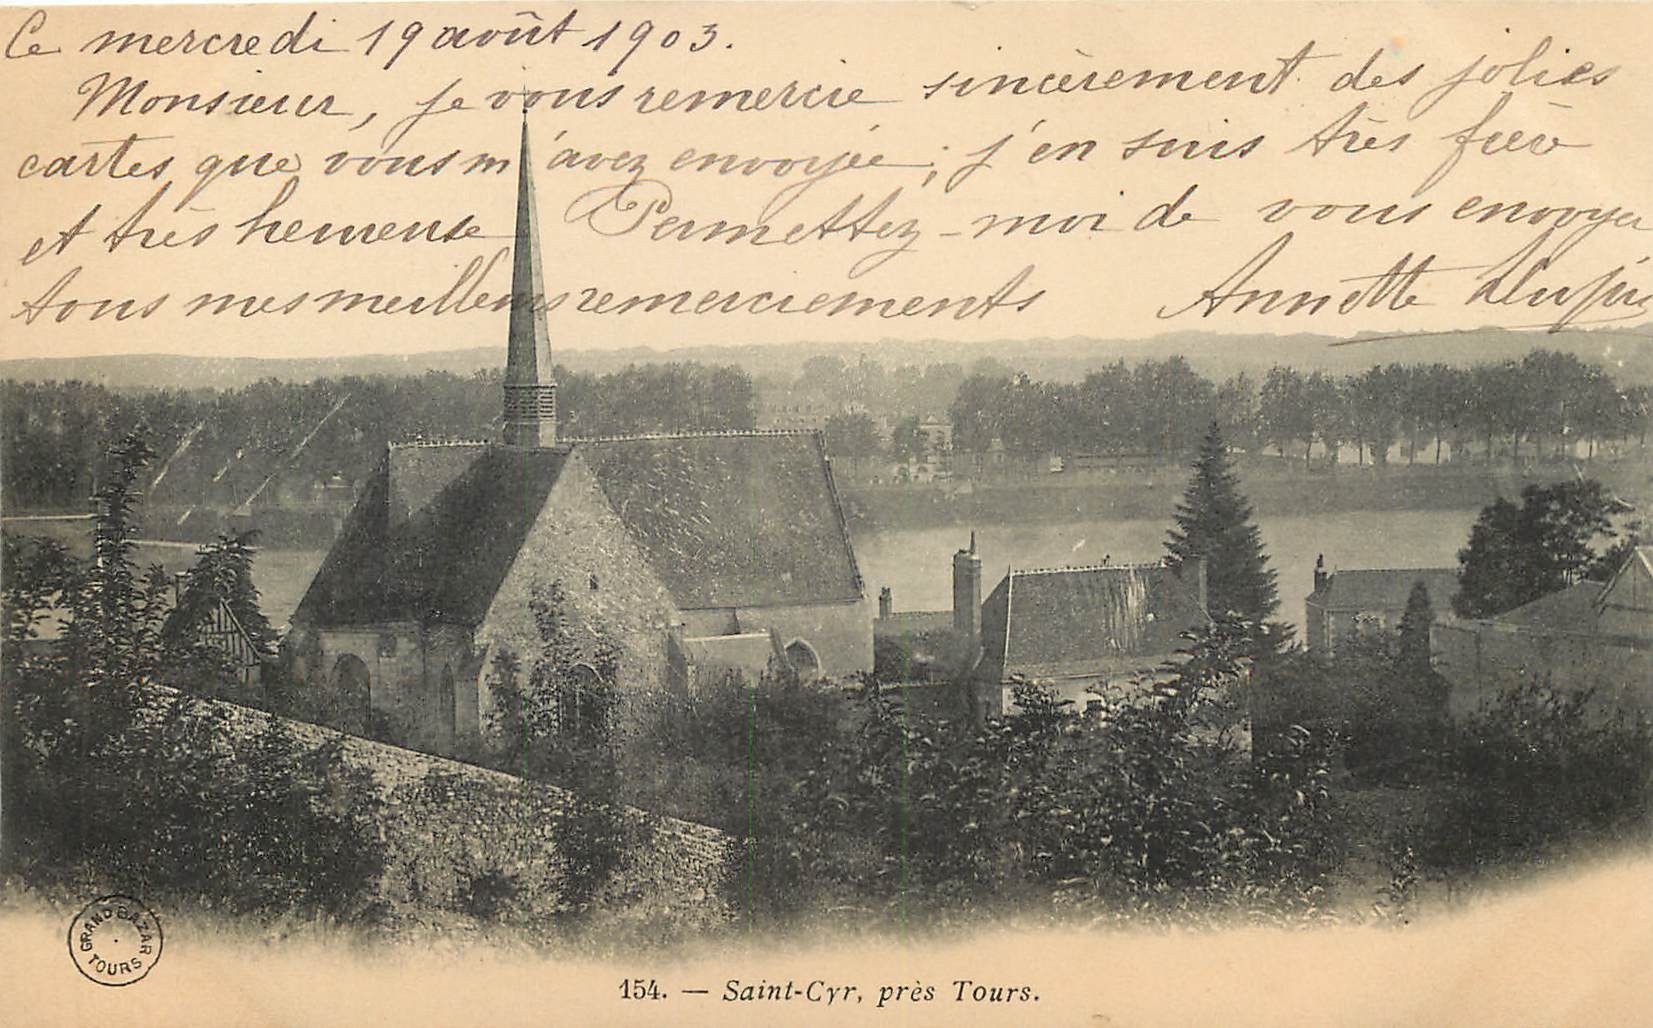 Ce mercredi 19 août 1903.
Monsieur, je vous remercie sincèrement des jolies
cartes que vous m'avez envoyée; j'en suis très fière
et très heureuse Permettez-moi de vous envoyer
tous mes meilleurs remerciements Annette
GRAND BAZAR
TOURS
154. — Saint-Cyr, près Tours.